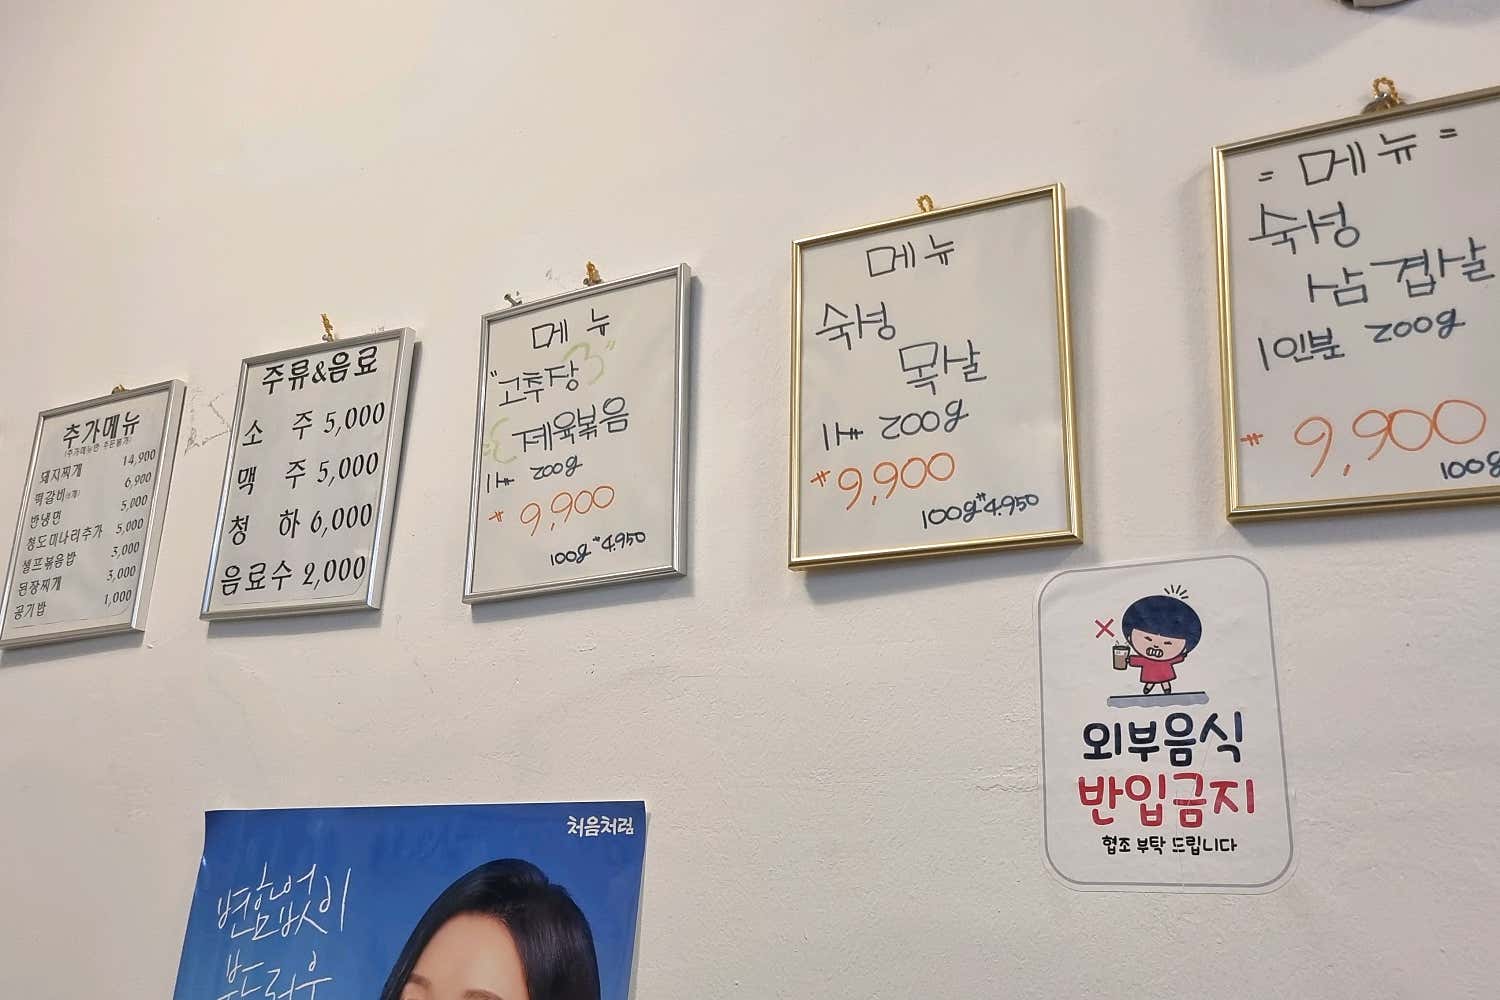 추가메뉴
(추가메뉴만 주문불가)
돼지찌개 14,900
떡갈비(5개) 6,900
반냉면 5,000
청도미나리추가 5,000
셀프볶음밥 3,000
된장찌개 3,000
공기밥 1,000
주류&음료
소 주 5,000
맥 주 5,000
청 하 6,000
음료수 2,000
메 뉴
"고추장"
제육볶음
200g
9,900
100g 4.950
메 뉴
숙성
목살
200g
9,900
100g 4.950
= 메 뉴 =
숙성
삼겹살
1인분 200g
9,900
100g
외부음식
반입금지
협조 부탁 드립니다
처음처럼
변함없이
부드러우